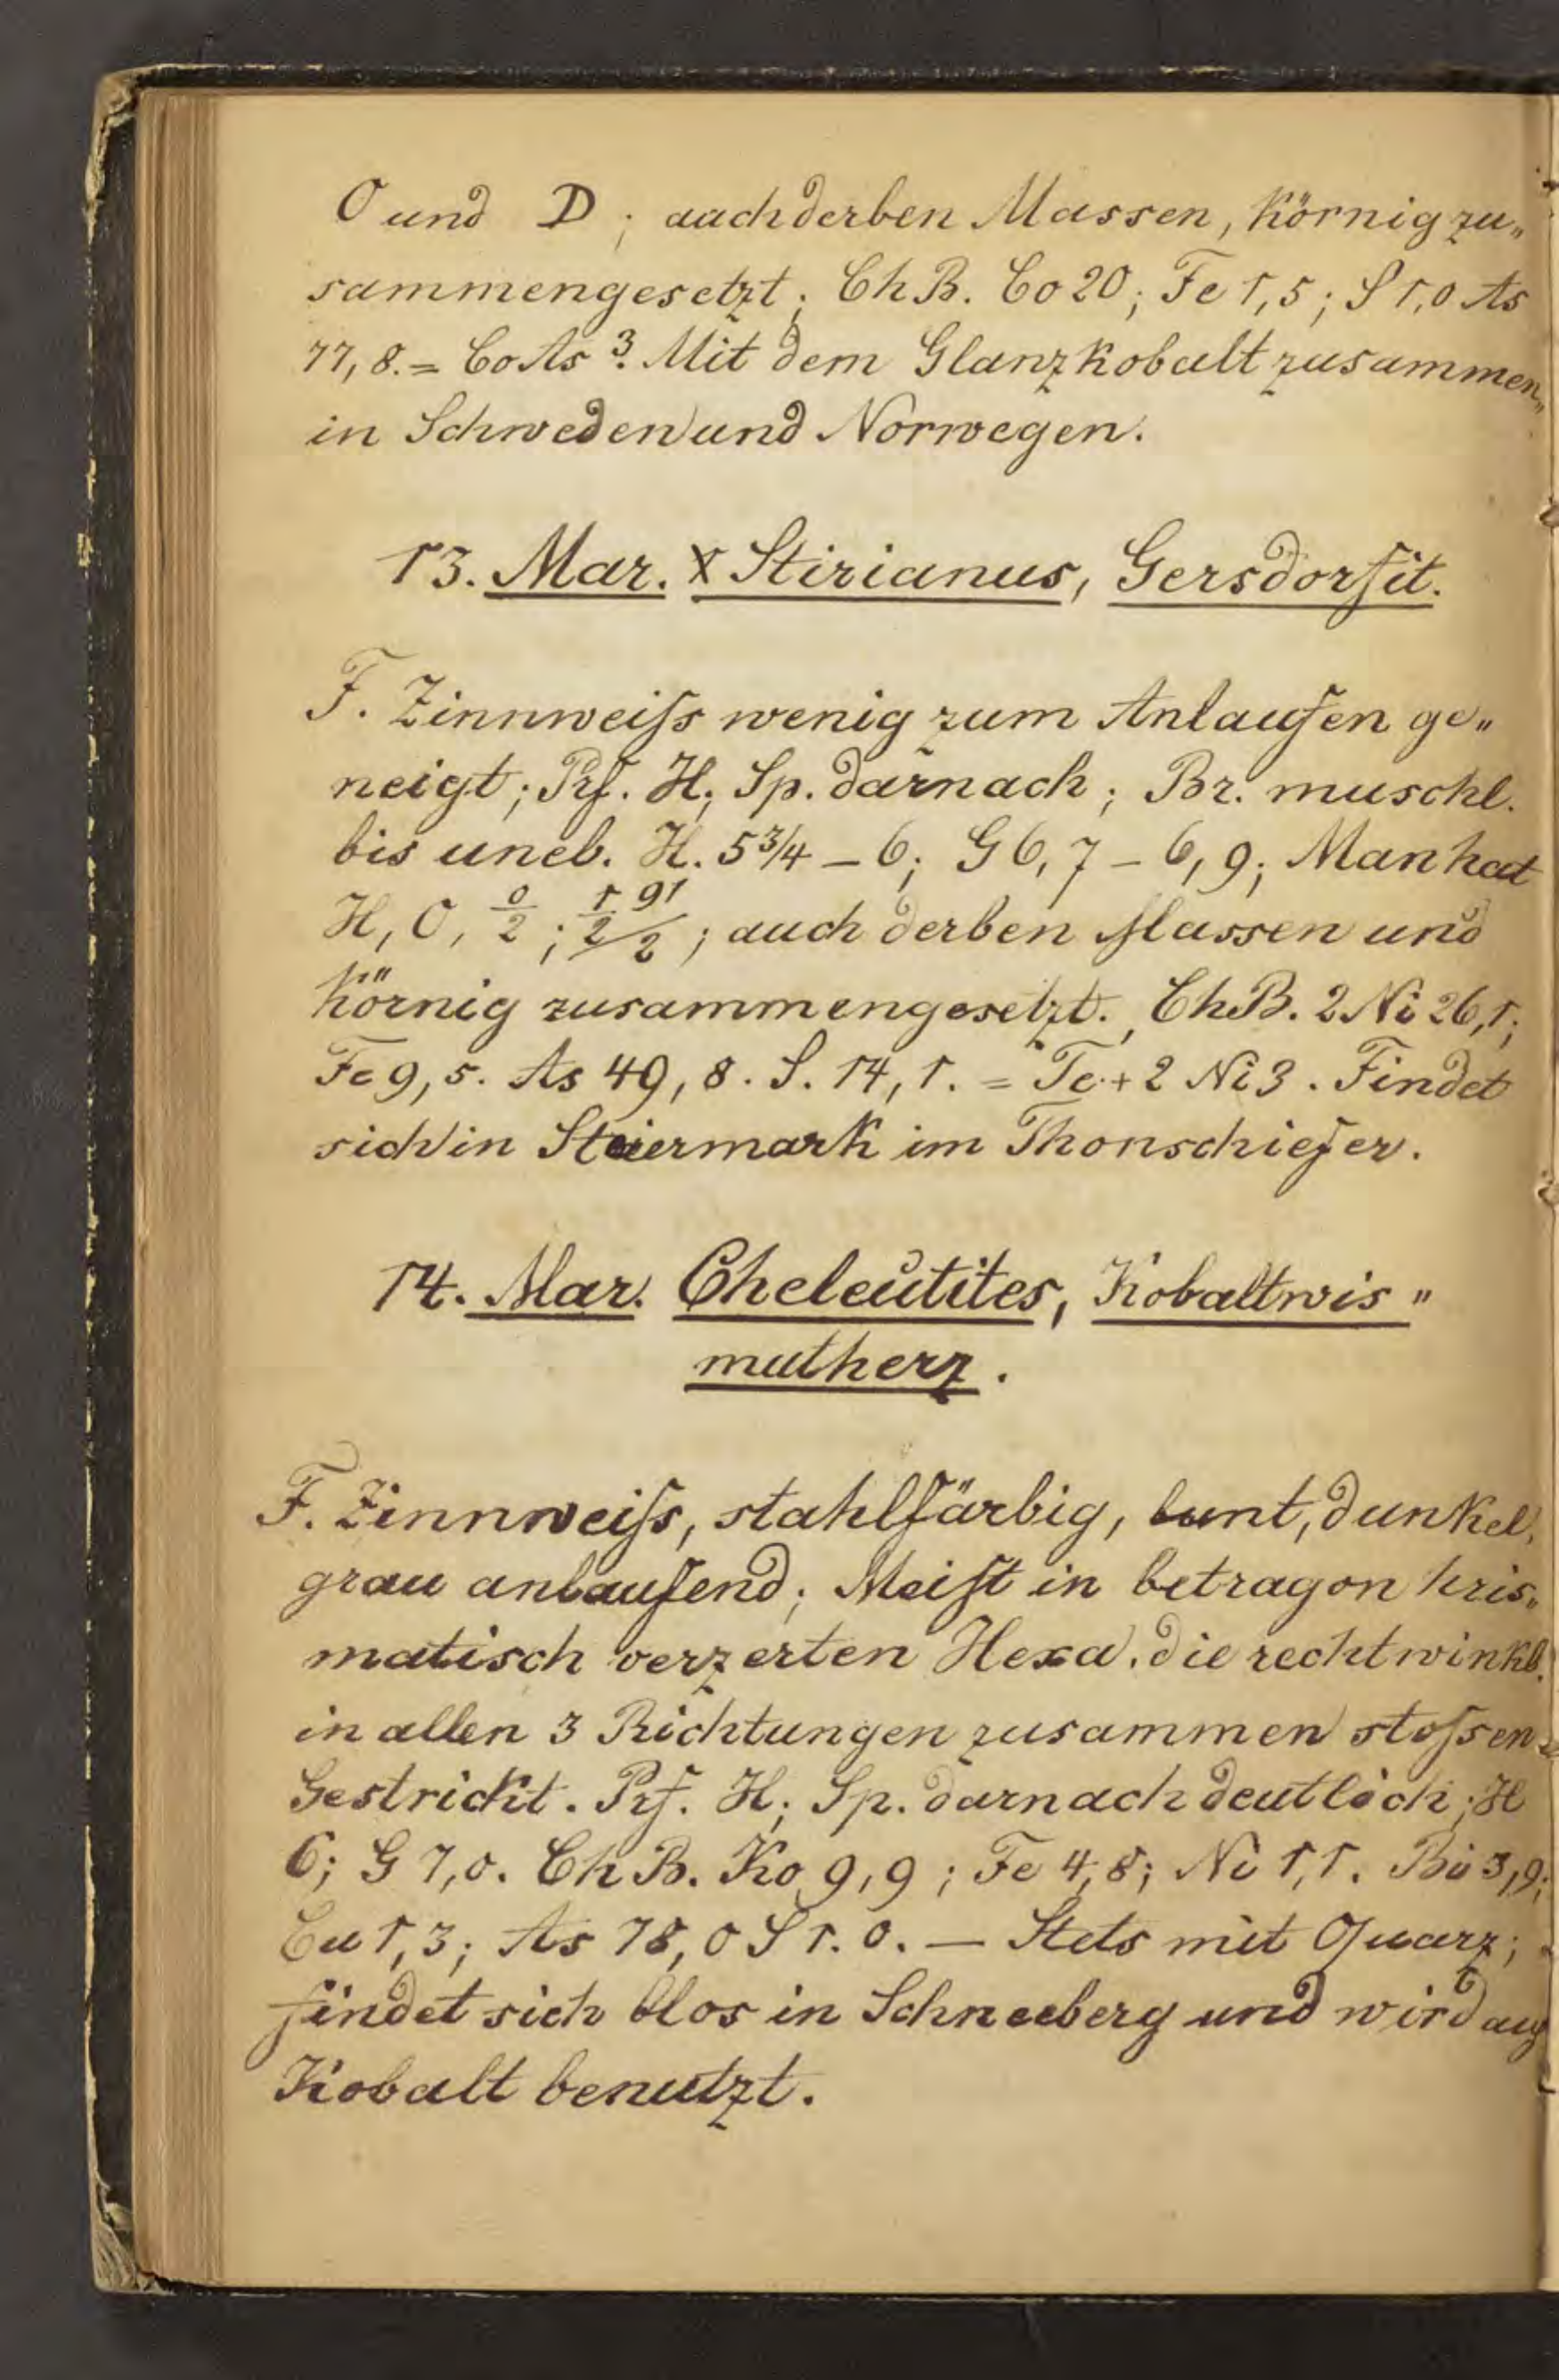 O und D; auch derben Massen, körnig zu„
sammengesetzt; ChB. Co 20; Fe 1,5; S 1,0 As
77,8. = CoAs 3. Mit dem Glanzkobalt zusammen„
in Schweden und Norwegen.
13. Mar. X Stirianus, Gersdorfit.
F. Zinnweiſs wenig zum Anlaufen ge„
neigt; Prf. H; Sp. darnach; Br. muschl.
bis uneb. H. 5 3/4 – 6; G 6,7 – 6,9; Man hat
H, O, o/2; ; auch derben Massen und
körnig zusammengesetzt. ChB. 2 Ni 26,1;
Fe 9,5. As 49,8. S. 14,1. = Te + 2 Ni 3. Findet
sich in Steiermark im Thonschiefer.
14. Mar. Cheleutites, Kobaltwis„
mutherz.
F. Zinnweiſs, stahlfärbig, bunt, dunkel,
grau anlaufend; Meiſt in betragon kris„
matisch verzerten Hexa. die rechtwinkl.
in allen 3 Richtungen zusammen stoſsen
Gestrickt. Prf. H; Sp. darnach deutlich; H
6; G 7,0. ChB. Ko 9,9; Fe 4,8; Ni 1,1. Bi 3,9;
Cu 1,3; As 78,0 S 1.0. — Stets mit Quarz;
findet sich blos in Schneeberg und wird auf
Kobalt benutzt.